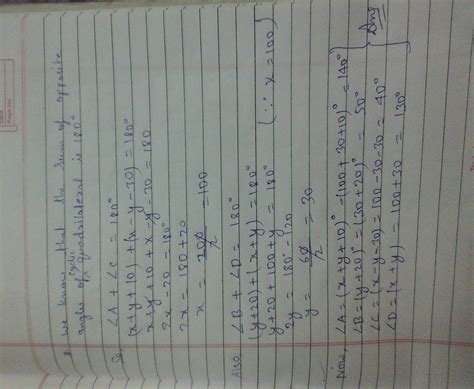 * We know that the sum of opposite
angles of cyclic quadrilateral is 180°
So, ∠A + ∠C = 180°
(x+y+10) + (x-y-30) = 180°
x+y+10+x-y-30 = 180
2x-20 = 180°
2x = 180+20
x = 200/2 = 100
Also ∠B + ∠D = 180°
(y+20) + (x+y) = 180°
y+20+100+y = 180° (∵ x = 100)
2y = 180°-120
y = 60/2 = 30
Now, ∠A = (x+y+10)° = (100+30+10)° = 140°
∠B = (y+20)° = (30+20)° = 50°
∠C = (x-y-30) = 100-30-30 = 40°
∠D = (x+y) = 100+30 = 130°
Ans